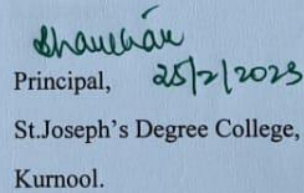 Principal, 25/2/2023
St.Joseph's Degree College,
Kurnool.